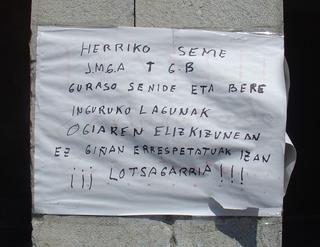 HERRIKO SEME
J.M.G.A T G.B
GURASO SENIDE ETA BERE
INGURUKO LAGUNAK
OGIAREN ELIZKIZUNEAN
EZ GIÑAN ERRESPETATUAK IZAN
¡¡¡ LOTSAGARRIA!!!